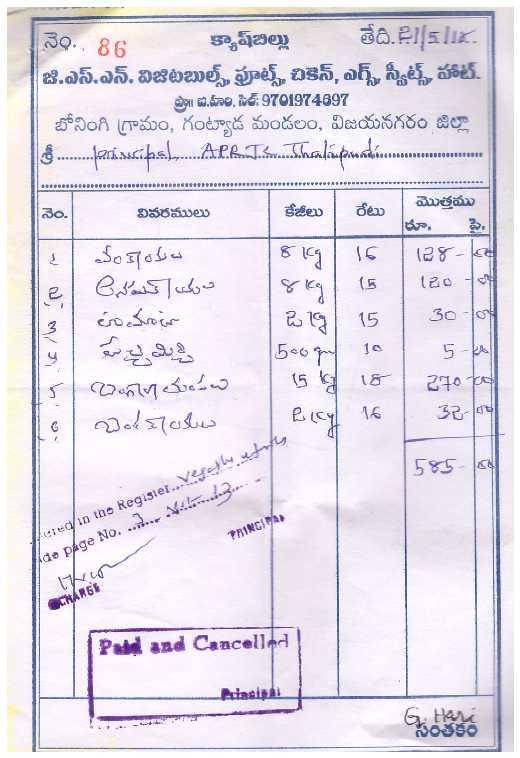 నెం. 86 క్యాష్‌బిల్లు తేది. 21/5/12.
జి.ఎస్.ఎన్. విజిటబుల్స్, ఫ్రూట్స్, చికెన్, ఎగ్స్, స్వీట్స్, హాట్.
ప్రొ॥ జి.హరి, సెల్: 9701974697
బోనింగి గ్రామం, గంట్యాడ మండలం, విజయనగరం జిల్లా
శ్రీ Principal, APRJC Thatipudi
నెం. వివరములు కేజీలు రేటు మొత్తము
రూ. పై.
1 వంకాయలు 8 Kg 16 128-00
2 ఆనపకాయలు 8 Kg 15 120-00
3 టమాటా 2 Kg 15 30-00
4 పచ్చిమిర్చి 500 gm 10 5-00
5 15 Kg 18 270-00
6 2 Kg 16 32-00
585-00
in the Register
page No.
PRINCIPAL
CHARGE
Paid and Cancelled
Principal
G. Hari
సంతకం